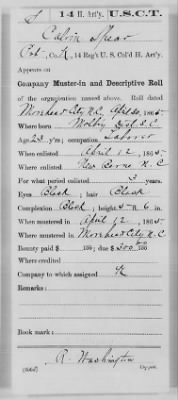 S | 14 H. Art'y. | U.S.C.T.
Calvin Spear
Pvt., Co. K, 14 Reg't U. S. Col'd H. Art'y.
Appears on
Company Muster-in and Descriptive Roll
of the organization named above. Roll dated
Morehead City N.C. Apl 30, 1865.
Where born Dist. S.C.
Age 23 y'rs; occupation Laborer
When enlisted April 12, 1865.
Where enlisted New Berne N.C.
For what period enlisted 3 years.
Eyes Black; hair Black
Complexion Black; height 5 ft. 6 in.
When mustered in April 12, 1865.
Where mustered in Morehead City N.C.
Bounty paid $ 100; due $ 300 00/100
Where credited
Company to which assigned K
Remarks:
Book mark:
A. Washington
(342) Copyist.